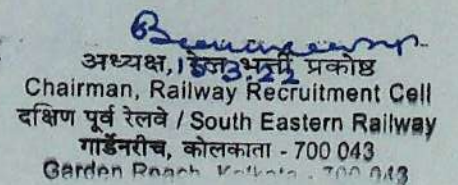 अध्यक्ष, रेल भर्ती प्रकोष्ठ
15.3.22
Chairman, Railway Recruitment Cell
दक्षिण पूर्व रेलवे / South Eastern Railway
गार्डेनरीच, कोलकाता - 700 043
Garden Reach, Kolkata - 700 043